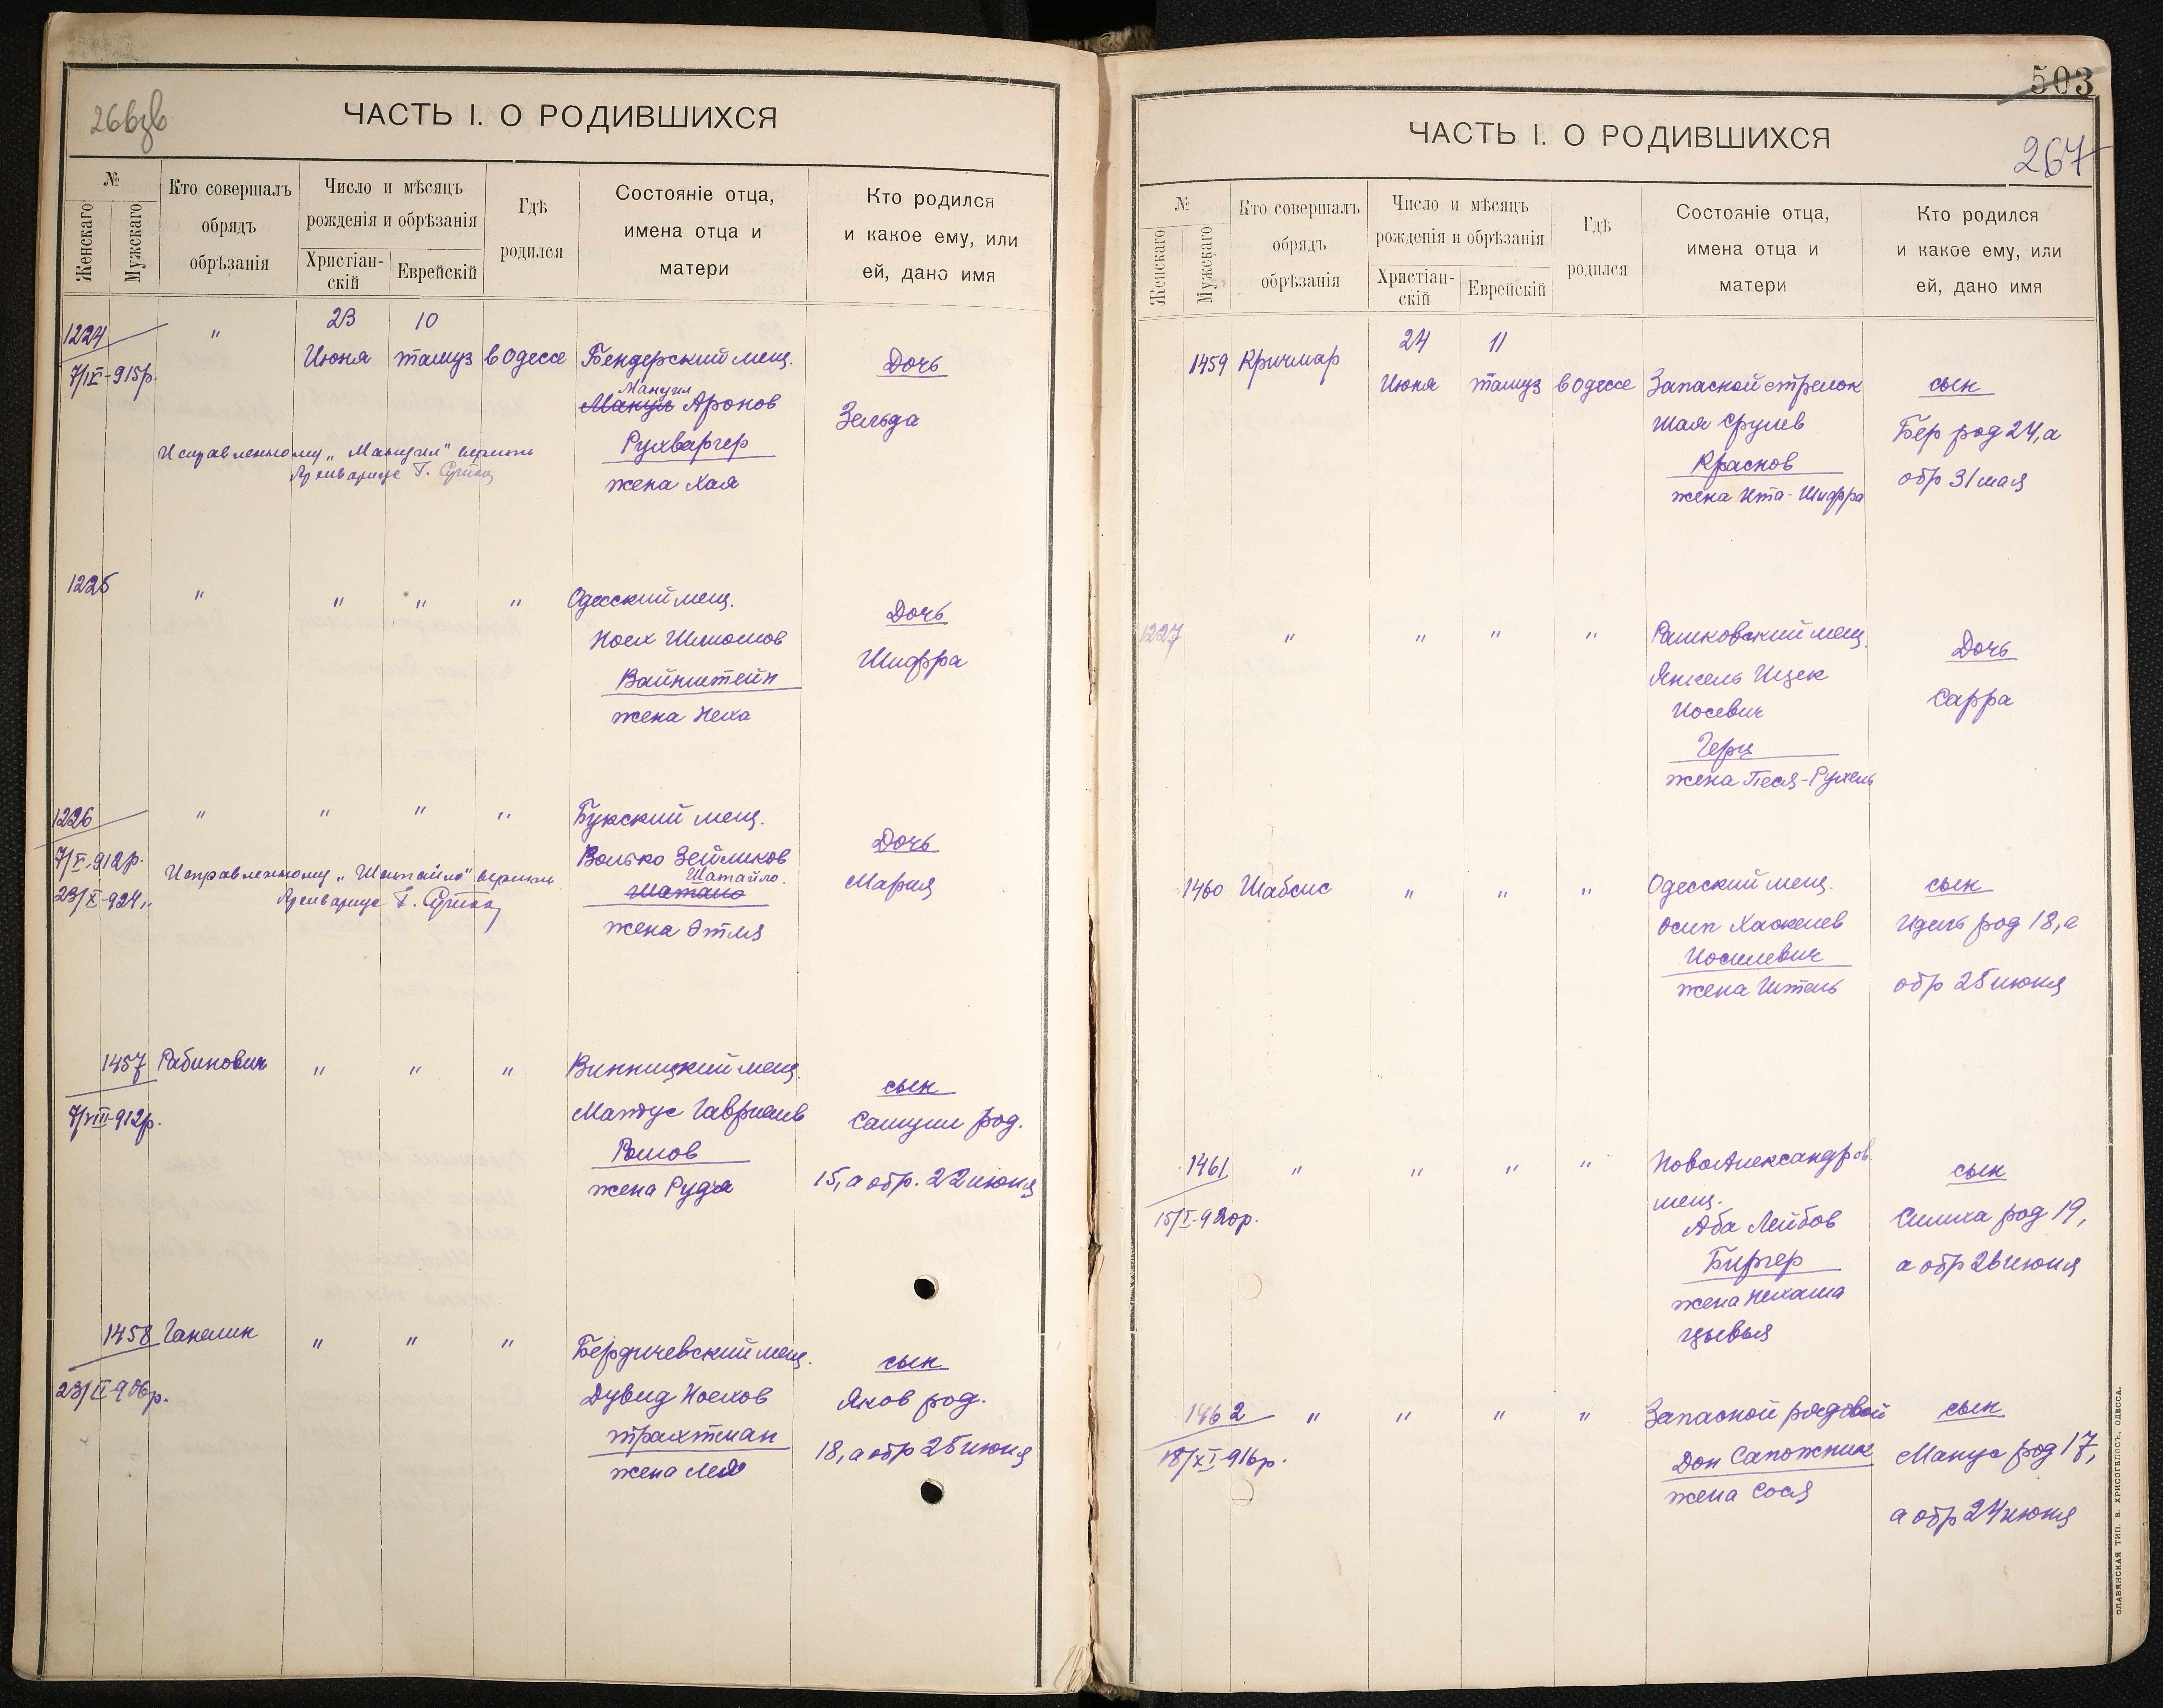 ЧАСТЬ I. О РОДИВШИХСЯ
№
Женскаго
Мужскаго
Кто совершалъ
обрядъ
обрѣзанія
Число и мѣсяцъ
рожденія и обрѣзанія
Христіан-
скій
Еврейскій
Гдѣ
родился
Состояніе отца,
имена отца и
матери
Кто родился
и какое ему, или
ей, дано имя
1224
7/IX-915р.
"
23
Июня
10
тамуз
в Одессе
Бендерский мещ.
Мануил
Аронов
Рухваргер
жена Хая
Дочь
Зельда
Исправленному „Мануил" верить
1225
" " " "
Одесский мещ.
Ноех Шлиомов
Вайнштейн
жена Неха
Дочь
Шифра
1226
7/V-912р.
23/X-924
" " " "
Букский мещ.
Волько Зейликов
Шатайло.
жена Этля
Дочь
Мария
Исправленному „Шатайло" верить
1457
7/VIII-912р.
Рабинович
" " "
Винницкий мещ.
Матус Гавриилев
жена Рудя
сын
род.
15, а обр. 22 июня
1458
23/II-906р.
Ганелин
" " "
Бердичевский мещ.
Дувид Ноехов
Трахтман
жена Лея
сын
Яков род.
18, а обр 25 июня
503
267
ЧАСТЬ I. О РОДИВШИХСЯ
№
Женскаго
Мужскаго
Кто совершалъ
обрядъ
обрѣзанія
Число и мѣсяцъ
рожденія и обрѣзанія
Христіан-
скій
Еврейскій
Гдѣ
родился
Состояніе отца,
имена отца и
матери
Кто родился
и какое ему, или
ей, дано имя
1459
Кричмар
24
Июня
11
тамуз
в Одессе
Запасной стрелок
Шая Срулев
Краснов
жена Ита-Шифра
сын
Бер род 24, а
обр 31 мая
1227
" " " "
Рашковский мещ.
Янкель Ицек
Иосевич
Герц
жена Песя-Рухель
Дочь
Сарра
1460
Шабсис
" " "
Одесский мещ.
Осип Хаскелев
Иосилевич
жена
сын
Идель род 18, а
обр 25 июня
1461
15/I-920р.
" " " "
Новоалександров.
мещ.
Аба Лейбов
Биргер
жена Нехама
Цывья
сын
Симха род 19,
а обр 26 июня
1462
18/XI-916р.
" " " "
Запасной рядовой
Дон Сапожник
жена Сося
сын
Манус род 17,
а обр 24 июня
СЛАВЯНСКАЯ ТИП. Е. ХРИСОГЕЛОСЪ, ОДЕССА.